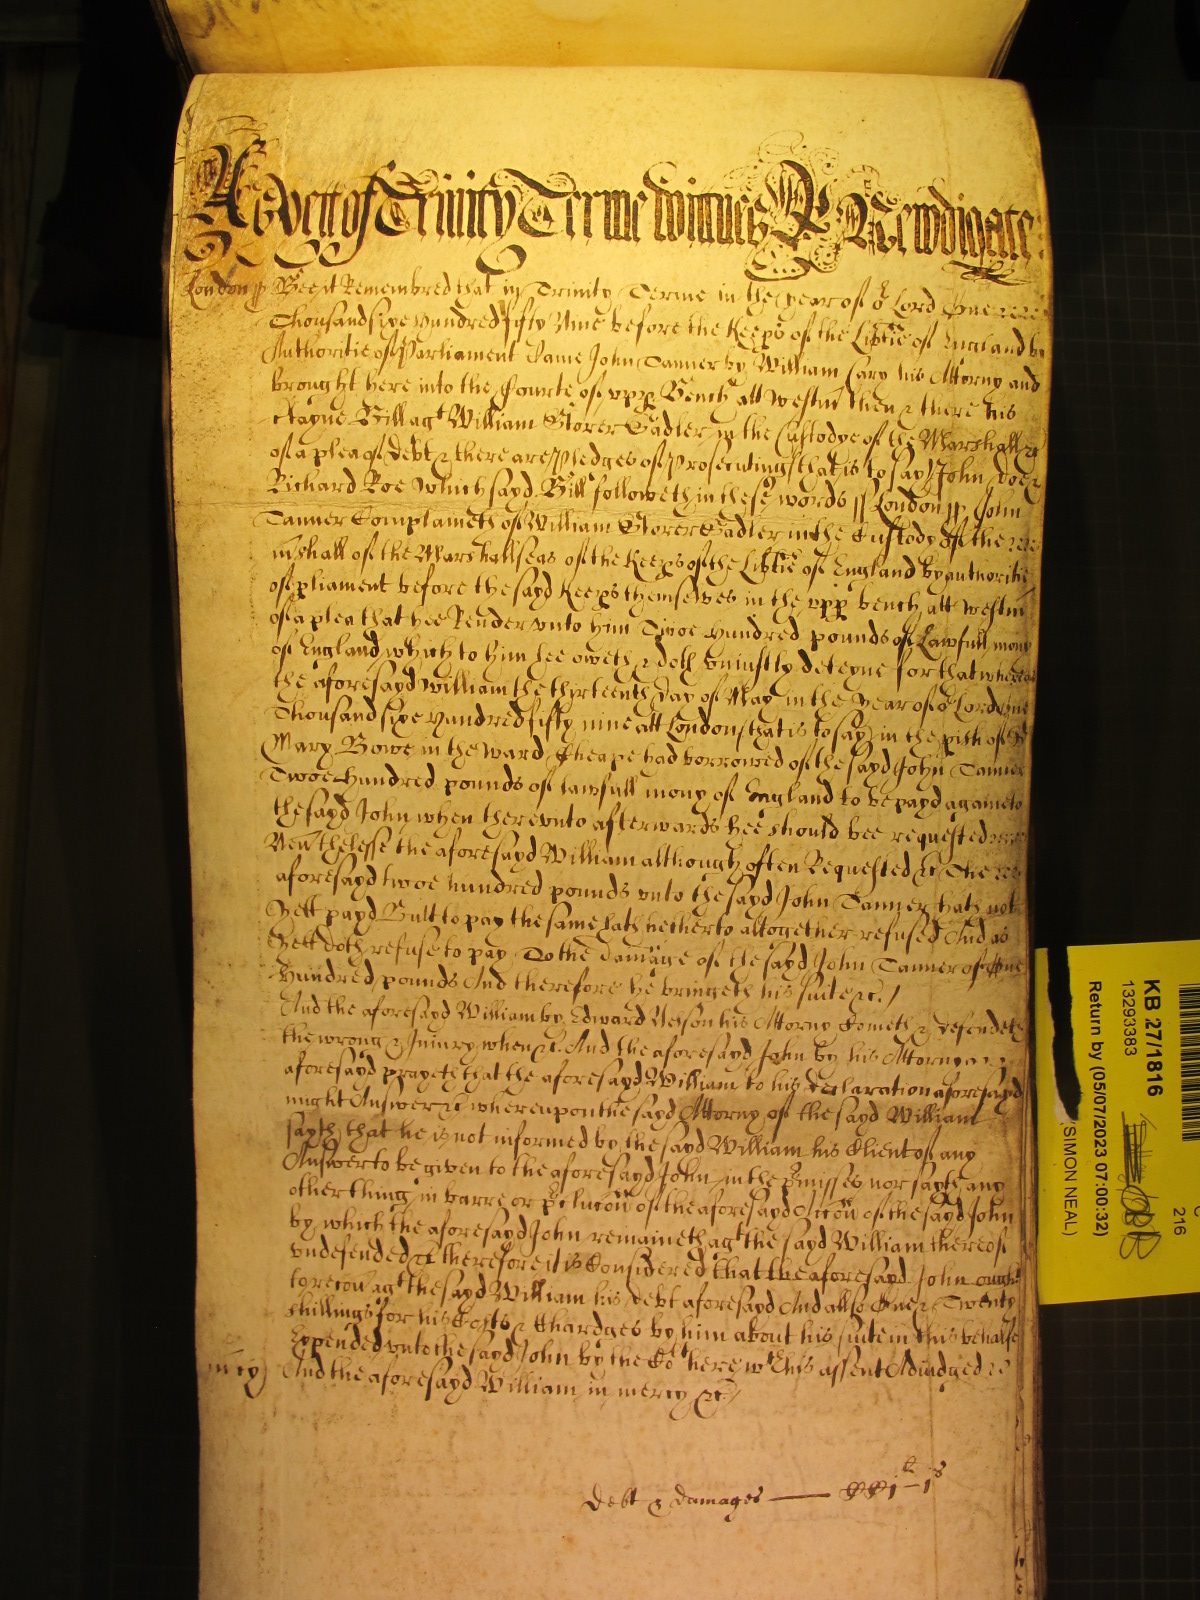 As yett of Trinity Terme witnes R Newdigate
London ss Bee it Remembred that in Trinity Terme in the year of or Lord One
Thousand sixe Hundred fifty Nine before the Keeps of the Libtie of England by
Authoritie of Parliament Came John Tanner by William Cary his Attorny and
brought here into the Courte of upp Bench att Westmr then & there his
Certayne Bill agt William Storer Sadler in the Custodye of the Marshall &c
of a plea of debt & there are pledges of Prosecuting that is to say John doe &
Richard Roe Which sayd Bill followeth in these words ss London ss John
Tanner Complaineth of William Storer Sadler in the Custody of the
mshall of the Marshallseas of the Keeps of the Libtie of England by authoritie
of pliament before the sayd Keeps themselves in the upp bench att Westmr
of a plea that hee Render unto him Twoe Hundred pounds of Lawfull mony
of England which to him hee oweth & doth uniustly deteyne for that whereas
the aforesayd William the thirteenth day of May in the year of or Lord One
Thousand sixe Hundred fifty nine att London that is to say in the pish of St
Mary Bowe in the Ward Cheape had borrowed of the sayd John Tanner
Twoe Hundred pounds of lawfull mony of England to be payd againe to
the sayd John when thereunto afterwards hee should bee requested
Nevthelesse the aforesayd William although often Requested &c The
aforesayd twoe hundred pounds unto the sayd John Tanner hath not
yett payd Butt to pay the same hath hetherto altogether refused And as
yett doth refuse to pay To the damage of the sayd John Tanner of One
Hundred pounds And therefore he bringeth his suite &c /
And the aforesayd William by Edward Nelson his Attorny Cometh & defendeth
the wrong & Iniury when &c And the aforesayd John by his Attorny
aforesayd prayeth that the aforesayd William to his declaration aforesayd
might Answer &c whereupon the sayd Attorny of the sayd William
sayth that he is not informed by the sayd William his Client of any
Answer to be given to the aforesayd John in the pmisses nor sayth any
other thing in barre or pclucon of the aforesayd Accon of the sayd John
by which the aforesayd John remaineth agt the sayd William thereof
undefended &c therefore it is Considered that the aforesayd John ought
to recov agt the sayd William his debt aforesayd And allso One & Twenty
shillings for his Costs & Chardges by him about his suite in this behalfe
Expended unto the sayd John by the Cort here wth his assent Adiudged &c
mcy And the aforesayd William in mercy &c /
debt & damages —— CCjli—js
KB 27/1816
13293383
Return by (05/07/2023 07:00:32)
SIMON NEAL)
216